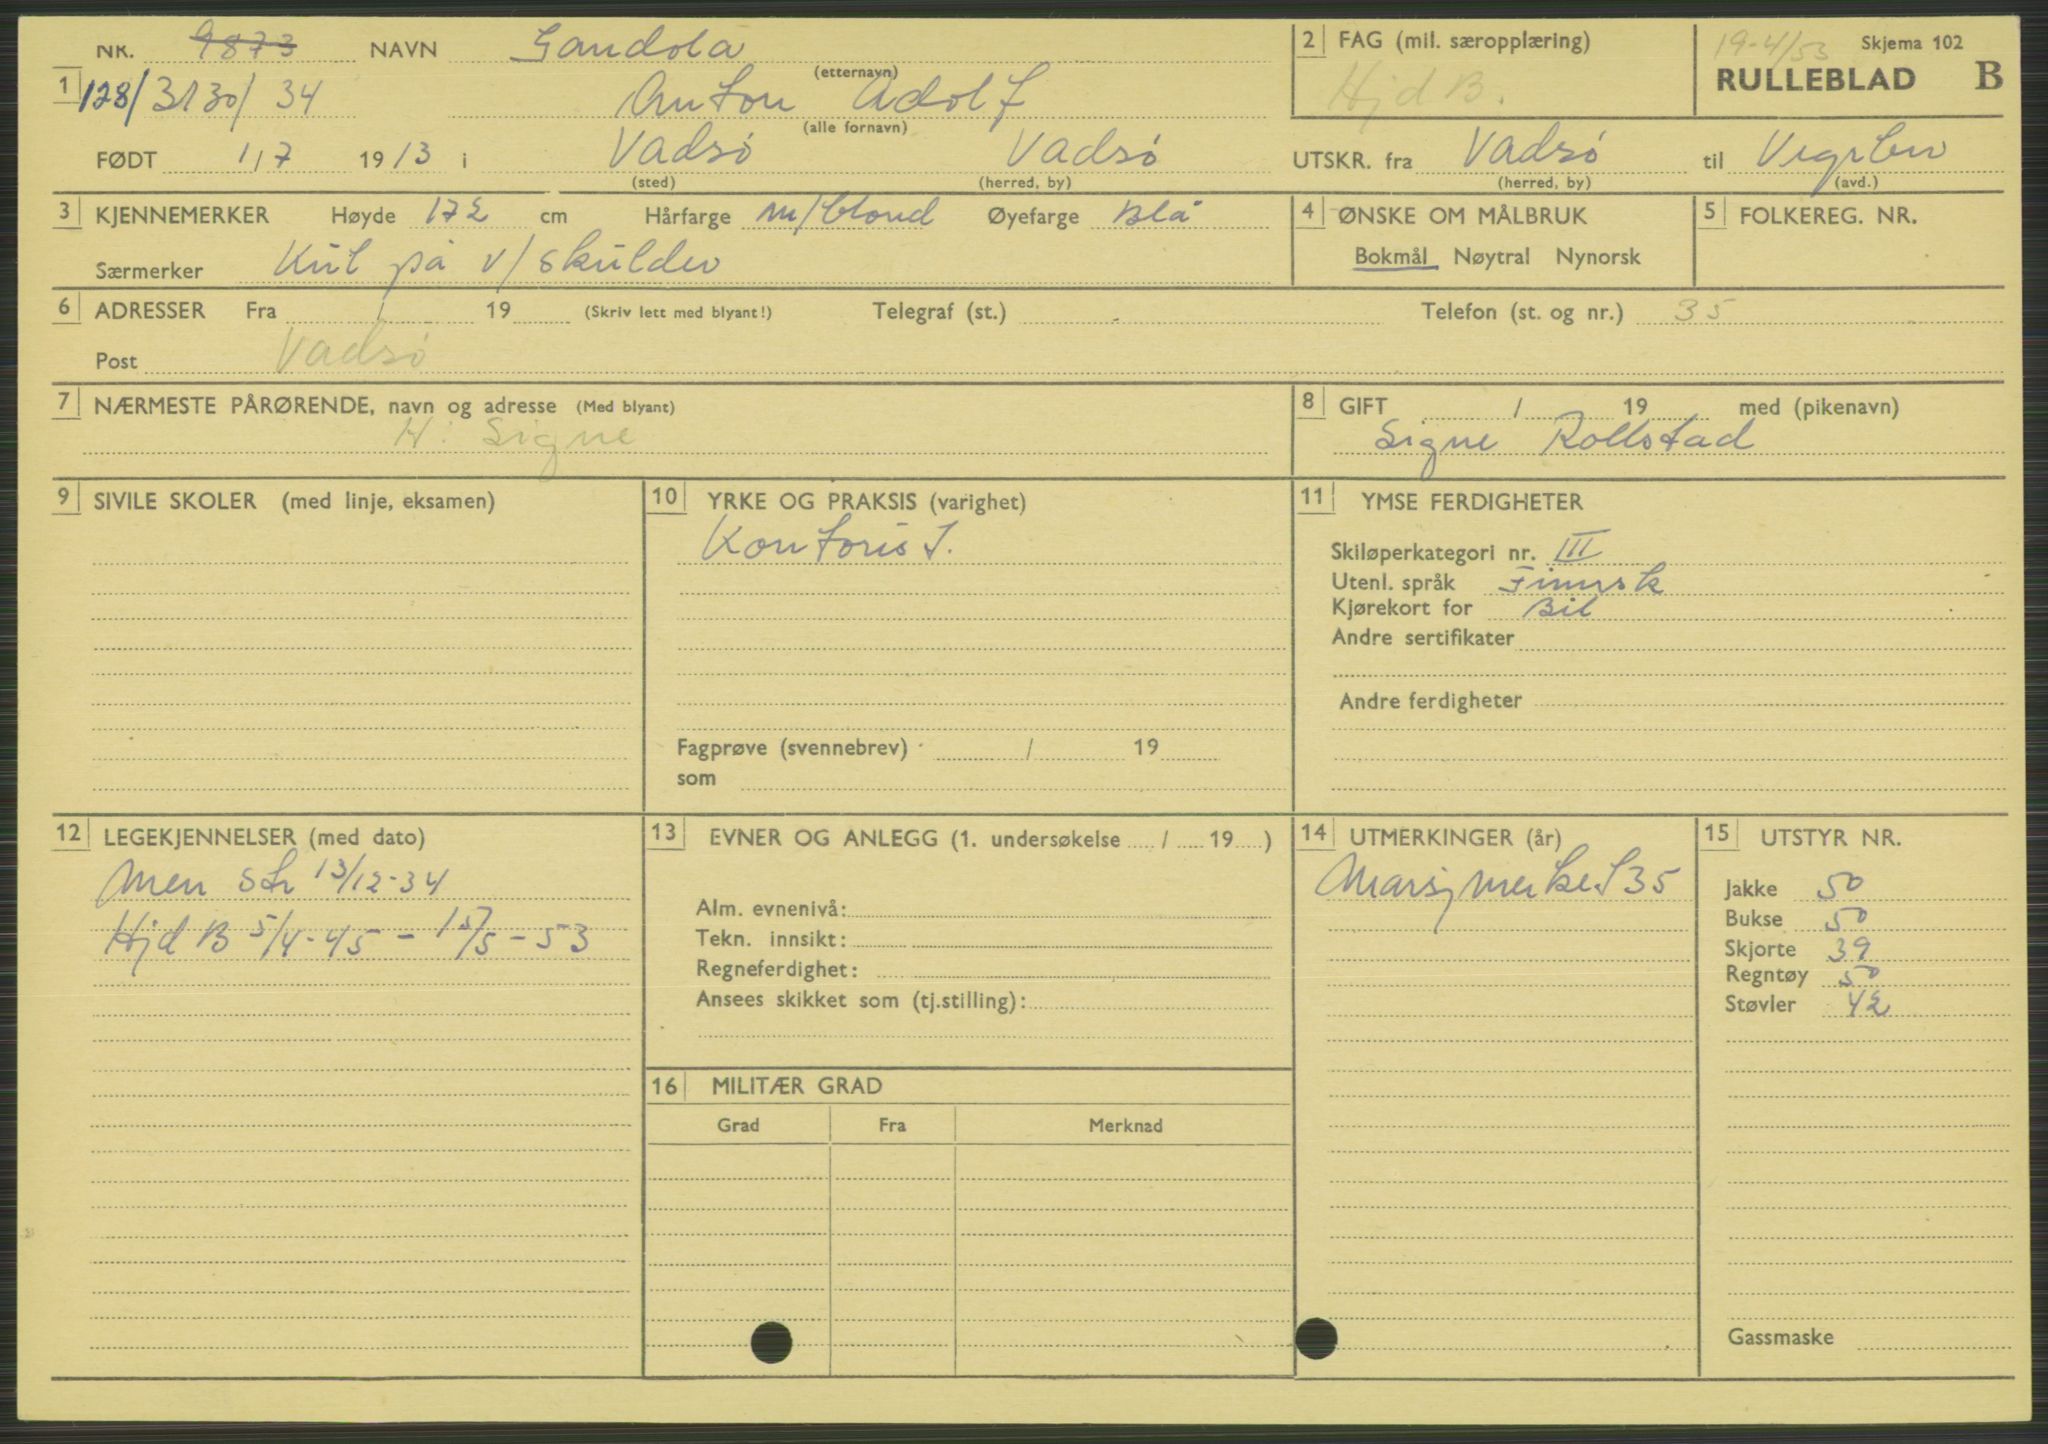 NR. 9873 NAVN Gandola 2 FAG (mil. særopplæring) 19-4/53 Skjema 102
(etternavn) RULLEBLAD B
1 128/3130/34 Anton Adolf Hjd B.
(alle fornavn)
FØDT 1/7 1913 i Vadsø Vadsø UTSKR. fra Vadsø til
(sted) (herred, by) (herred, by) (avd.)
3 KJENNEMERKER Høyde 172 cm Hårfarge m/blond Øyefarge Blå 4 ØNSKE OM MÅLBRUK 5 FOLKEREG. NR.
Særmerker Kul på v/skulder Bokmål Nøytral Nynorsk
6 ADRESSER Fra / 19 (Skriv lett med blyant!) Telegraf (st.) Telefon (st. og nr.) 35
Post Vadsø
7 NÆRMESTE PÅRØRENDE, navn og adresse (Med blyant) 8 GIFT / 19 med (pikenavn)
H: Signe Signe Rollstad
9 SIVILE SKOLER (med linje, eksamen) 10 YRKE OG PRAKSIS (varighet) 11 YMSE FERDIGHETER
Kontorist.
Skiløperkategori nr. III
Utenl. språk Finnsk
Kjørekort for Bil
Andre sertifikater
Andre ferdigheter
Fagprøve (svennebrev) / 19
som
12 LEGEKJENNELSER (med dato) 13 EVNER OG ANLEGG (1. undersøkelse / 19 ) 14 UTMERKINGER (år) 15 UTSTYR NR.
Men str 13/12-34 Marsjmerket 35
Hjd B 5/4-45 - 15/5-53
Alm. evnenivå:
Tekn. innsikt:
Regneferdighet:
Ansees skikket som (tj.stilling):
Jakke 50
Bukse 50
Skjorte 39
Regntøy 50
Støvler 42
16 MILITÆR GRAD
Grad Fra Merknad
Gassmaske